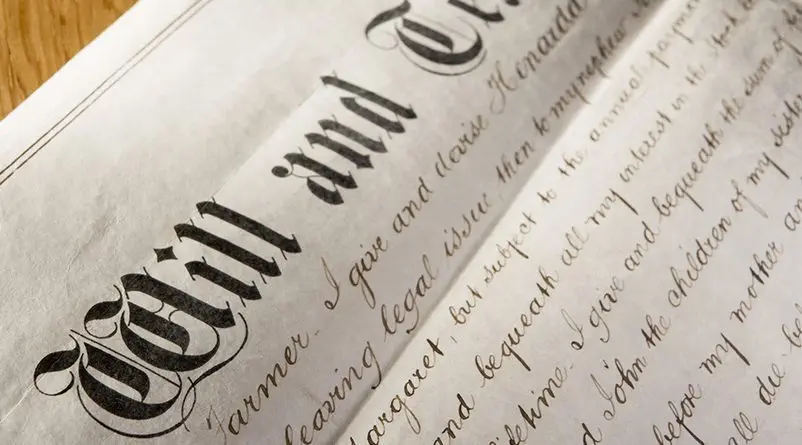 Will and Te
Farmer. I give and devise Henarda
leaving legal issue, then to my nephew
argaret, but subject to the annual paymen
and bequeath all my interest in the stock
lifetime. I give and bequeath the sum of
d John the children of my sister
before my mother an
ll die be